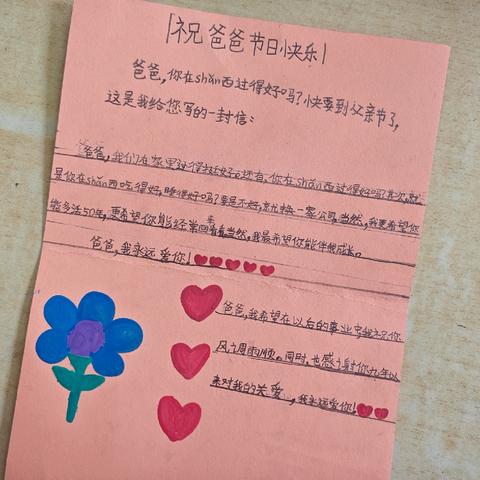 祝爸爸节日快乐！
爸爸,你在shǎn西过得好吗?快要到父亲节了,
这是我给您写的一封信:
爸爸,我们在家里过得挺好。还有,你在shǎn西过得好吗?其次,就
是你在shǎn西吃得好,睡得好吗?要是不好,就换一家公司,当然,我更希望你
能多活50年,更希望你能经常回来看看,当然,我最希望你能伴我成长。
爸爸,我永远爱你!
爸爸,我希望在以后的事业中,我祝你
风调雨顺。同时,也感谢你九年以
来对我的关爱,我永远爱你!